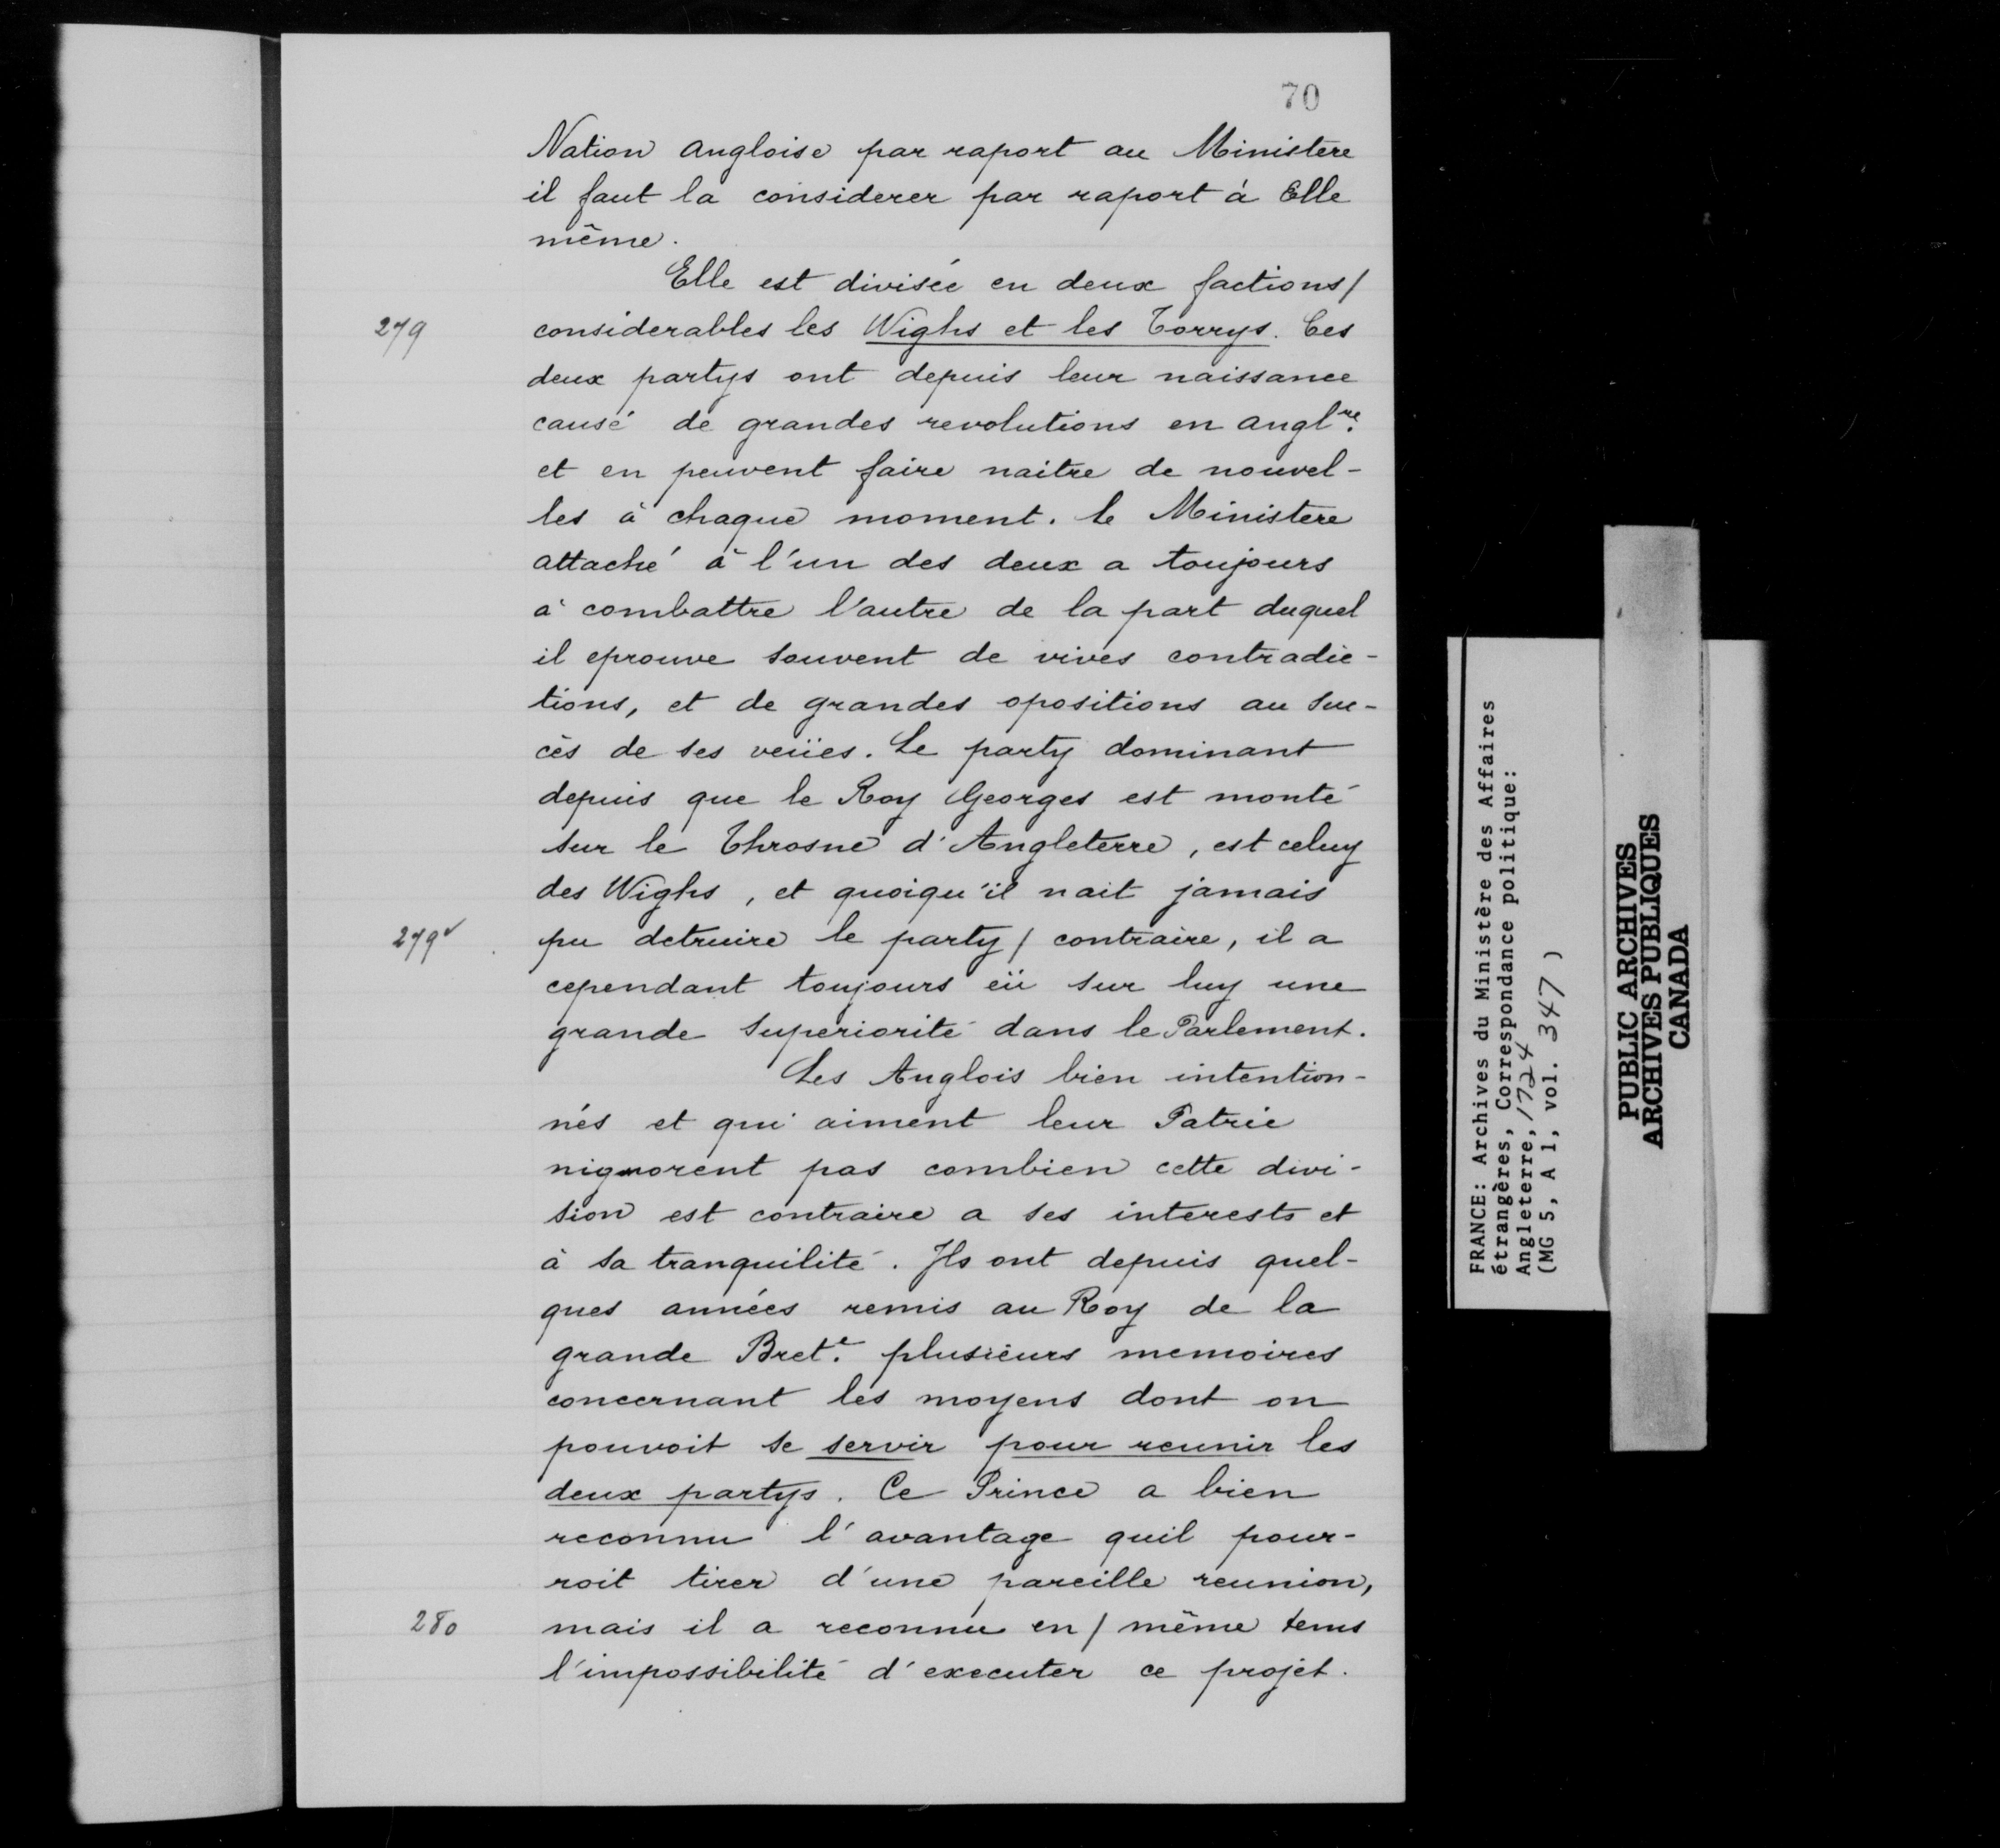 70
Nation angloise par raport au Ministere
il faut la considerer par raport à Elle
même.
Elle est divisée en deux factions/
279
considerables les Wighs et les Torrys. Ces
deux partys ont depuis leur naissance
causé de grandes revolutions en angl.re
et en peuvent faire naitre de nouvel-
les à chaque moment. le Ministere
attaché à l'un des deux a toujours
à combattre l'autre de la part duquel
il eprouve souvent de vives contradic-
tions, et de grandes opositions au suc-
cès de ses veües. Le party dominant
depuis que le Roy Georges est monté
sur le Throsne d'Angleterre, est celuy
des Wighs, et quoiqu'il nait jamais
279v
pu detruire le party / contraire, il a
cependant toujours eü sur luy une
grande superiorité dans le Parlement.
Les Anglois bien intention-
nés et qui aiment leur Patrie
nignorent pas combien cette divi-
sion est contraire a ses interests et
à sa tranquilité. Ils ont depuis quel-
ques années remis au Roy de la
grande Bret.e plusieurs memoires
concernant les moyens dont on
pouvoit se servir pour reunir les
deux partys. Ce Prince a bien
reconnu l'avantage quil pour-
roit tirer d'une pareille reunion,
280
mais il a reconnu en / même tems
l'impossibilité d'executer ce projet.
FRANCE: Archives du Ministère des Affaires
étrangères, Correspondance politique:
Angleterre, 1724
(MG 5, A 1, vol. 347)
PUBLIC ARCHIVES
ARCHIVES PUBLIQUES
CANADA